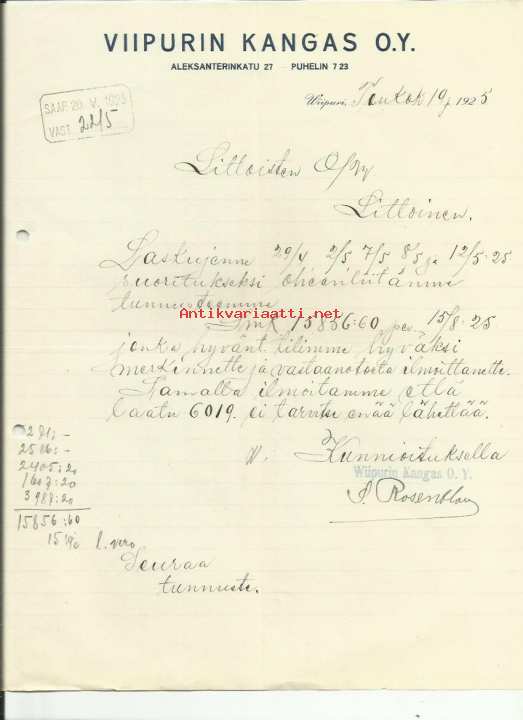 VIIPURIN KANGAS O.Y.
ALEKSANTERINKATU 27 PUHELIN 7 23
SAAP. 20. V. 1925
VAST. 22/5
Wiipuri, Toukok 19 p. 1925
Littoisten O/Y
Littoinen.
Laskujenne 29/4 2/5 7/5 8/5 ja 12/5-25
suoritukseksi oheenliitämme
tunnusteemme
Antikvariaatti.net
Smk 15856:60 per. 15/8-25
jonka hyvänt. tilimme hyväksi
merkinnette ja vastaanotosta ilmoittanette.
Samalla ilmoitamme että
laatu 6019. ei tarvitse enää lähettää.
Kunnioituksella
Wiipurin Kangas O. Y.
S. Rosenblau
2586:-
2405:20
1607:20
3988:20
15856:60
l. vero
Seuraa
tunnuste.